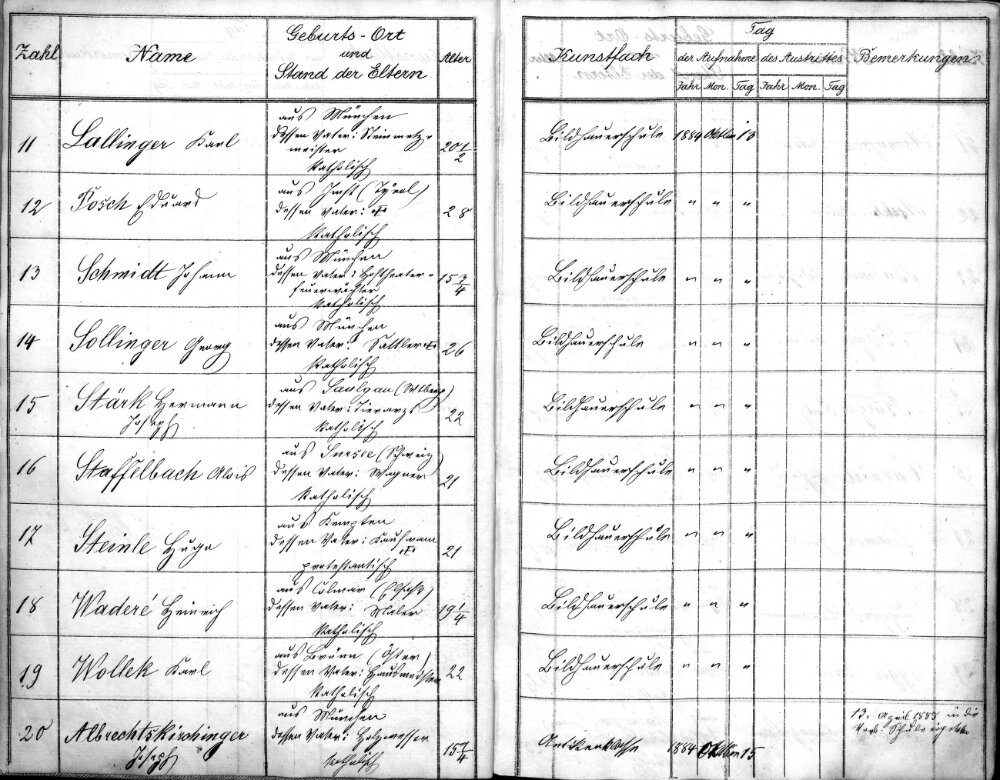 Zahl Name Geburts-Ort und Stand der Eltern Alter Kunstfach Tag der Aufnahme des Austrittes Bemerkungen
Jahr Mon. Tag Jahr Mon. Tag
aus München
11 Lallinger Karl dessen Vater: Steinmetz- 20 1/2 Bildhauerschule 1884 Oktober 15
meister
katholisch
aus Imst (Tyrol)
12 Posch Eduard dessen Vater: 28 Bildhauerschule " " "
katholisch
aus München
13 Schmidt Johann dessen Vater: Hoftheater- 15 3/4 Bildhauerschule " " "
feuerwächter
katholisch
aus München
14 Sollinger Georg dessen Vater: Sattler 26 Bildhauerschule " " "
katholisch
aus Saulgau (Wttbrg)
15 Stärk Hermann dessen Vater: Tierarzt 22 Bildhauerschule " " "
Joseph katholisch
aus Sursee (Schweiz)
16 Staffelbach Alois dessen Vater: Wagner 21 Bildhauerschule " " "
katholisch
aus Kempten
17 Steinle Hugo dessen Vater: Kaufmann 21 Bildhauerschule " " "
protestantisch
aus Colmar (Elsaß)
18 Waderé Heinrich dessen Vater: Maler 19 1/4 Bildhauerschule " " "
katholisch
aus Brünn (Öster)
19 Wollek Karl dessen Vater: Hausmeister 22 Bildhauerschule " " "
katholisch
aus München 13. April 1885 in die
20 Albrechtskirchinger dessen Vater: Holzmesser 15 1/4 Antikenklasse 1884 Oktober 15 Schule
Joseph katholisch